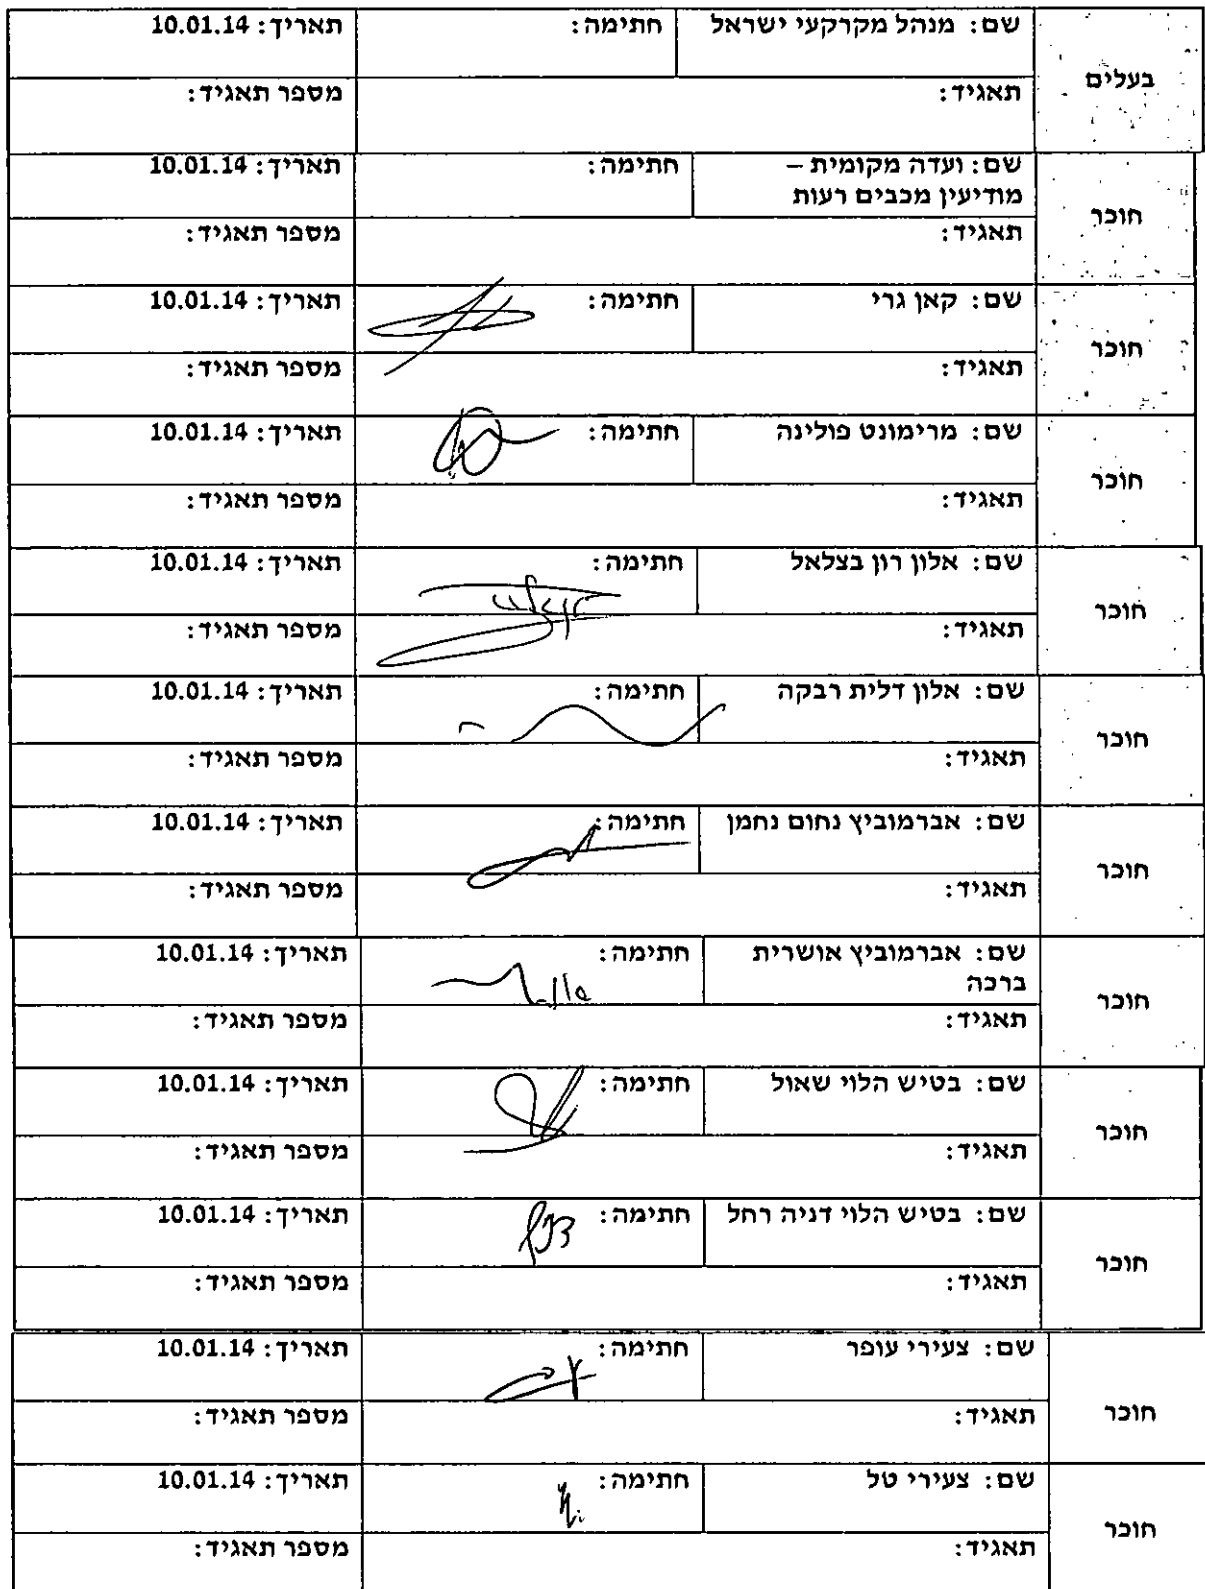 בעלים
שם: מנהל מקרקעי ישראל חתימה: תאריך: 10.01.14
תאגיד: מספר תאגיד:
חוכר
שם: ועדה מקומית – חתימה: תאריך: 10.01.14
מודיעין מכבים רעות
תאגיד: מספר תאגיד:
חוכר
שם: קאן גרי חתימה: תאריך: 10.01.14
תאגיד: מספר תאגיד:
חוכר
שם: מרימונט פולינה חתימה: תאריך: 10.01.14
תאגיד: מספר תאגיד:
חוכר
שם: אלון רון בצלאל חתימה: תאריך: 10.01.14
תאגיד: מספר תאגיד:
חוכר
שם: אלון דלית רבקה חתימה: תאריך: 10.01.14
תאגיד: מספר תאגיד:
חוכר
שם: אברמוביץ נחום נחמן חתימה: תאריך: 10.01.14
תאגיד: מספר תאגיד:
חוכר
שם: אברמוביץ אושרית חתימה: תאריך: 10.01.14
ברכה
תאגיד: מספר תאגיד:
חוכר
שם: בטיש הלוי שאול חתימה: תאריך: 10.01.14
תאגיד: מספר תאגיד:
חוכר
שם: בטיש הלוי דניה רחל חתימה: תאריך: 10.01.14
תאגיד: מספר תאגיד:
חוכר
שם: צעירי עופר חתימה: תאריך: 10.01.14
תאגיד: מספר תאגיד:
חוכר
שם: צעירי טל חתימה: תאריך: 10.01.14
תאגיד: מספר תאגיד: